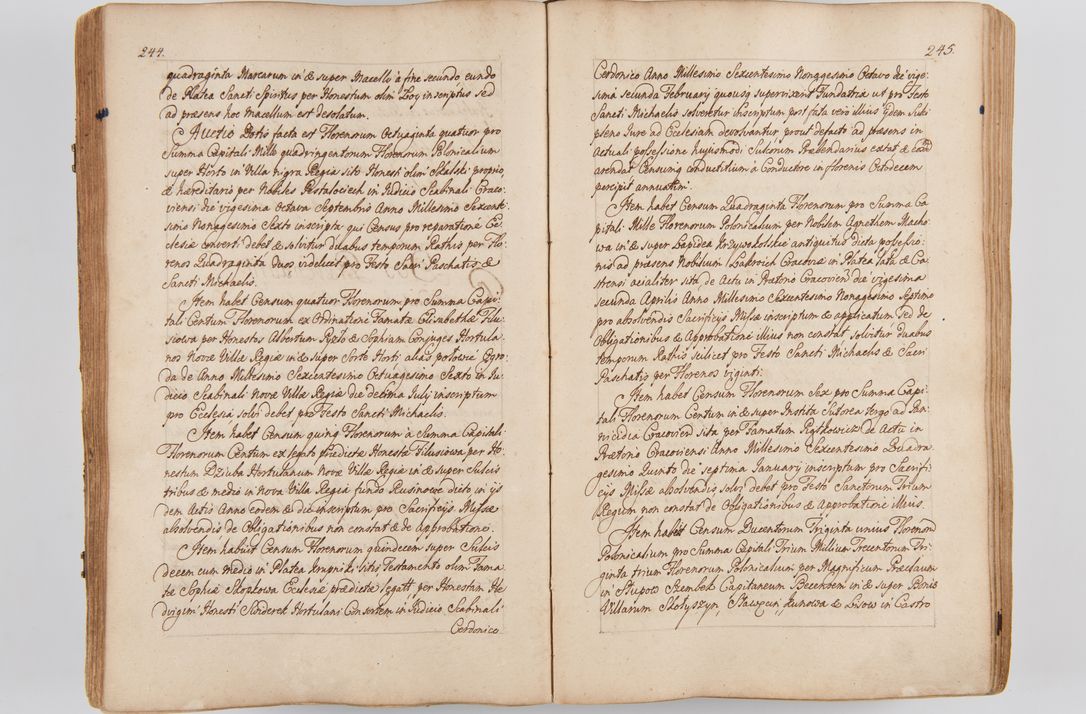 244.
quadraginta Marcarum in & super Macello à fine secundo eundo
de Platea Sancti Spiritus per Honestum olim Zoy inscriptus sed
ad præsens hoc Macellum est desolatum.
Auctio Dotis facta est Florenorum Octuaginta quatuor pro
Summa Capitali Mille quadringentorum Florenorum Polonicalium
super Horto in Villa nigra Regia sito Honesti olim Skalski proprio,
& hæreditario per in Iudicio Scabinali Craco-
viensi die vigesima Octava Septembris Anno Millesimo Sexcente-
simo Nonagesimo Sexto inscripta qui Census pro reparatione Ec-
clesiæ converti debet & solvitur duabus temporum Rathis per Flo-
renos Quadraginta duos videlicet pro Festo Sacri Paschatis &
Sancti Michaelis.
Item habet Censum quatuor Florenorum pro Summa Capi-
tali Centum Florenorum ex Ordinatione Famatæ Elisabethæ Filu-
siowa per Honestos Albertum & Sophiam Conjuges Hortula-
nos Novæ Villæ Regiæ in & super Sorte Horti alias połowie Ogro-
da de Anno Millesimo Sexcentesimo Octuagesimo Sexto in Iu-
dicio Scabinali Novæ Villæ Regiæ die decima Julij inscriptum
pro Ecclesia solvi debet pro Festo Sancti Michaelis.
Item habet Censum quinq Florenorum à Summa Capitali
Florenorum Centum ex legato prædictæ Honestæ Filusiowa per Ho-
nestum Dziuba Hortulanum Novæ Villæ Regiæ in & super Sulcis
tribus & medio in Nova Villa Regia fundo Rusinowe dicto in ijs
dem Actis Anno eodem & die inscriptum pro Sacrificijs Missæ
absolvendis de Obligationibus non constat & de Approbatione.
Item habuit Censum Florenorum quindecem super Sulcis
decem cum medio in Platea Krupniki sitis Testamento olim Fama-
tæ Sophiæ Skrzkowa Ecclesiæ prædictæ legatt per Honestam He-
dvigim Honesti Sinderek Hortulani Consortem in Iudicio Scabinali
Cerdonico
245.
Cerdonico Anno Millesimo Sexcentesimo Nonagesimo Octavo die vige-
sima secunda February quousq supervixerit Fundatrix ut pro Festo
Sancti Michaelis solveretur inscriptum post fata vero illius ijdem Sulci
pleno Iure ad Ecclesiam devolvantur prout defacto ad præsens in
Actuali possessione hujusmodi Sulcorum Præbendarius extat &
arendat Censumq conductitium à Conductore in florenis Octodecem
percipit annuatim.
Item habet Censum Quadraginta Florenorum pro Summa Ca-
pitali Mille Florenorum Polonicalium per Nobilem Agnethem Macho-
wa in & super Lapidea Krzywokolskie antiquitus dicta possessio-
nis ad præsens Nobilium Cracoviæ in Platea lata & Ca-
strensi acialiter sita, de Actu in Prætorio Cracovien die vigesima
secunda Aprilis Anno Millesimo Sexcentesimo Nonagesimo Septimo
pro absolvendis Sacrificijs Missæ inscriptum & applicatum sed de
Obligationibus & Approbatione illius non constat solvitur duabus
temporum Rathis scilicet pro Festo Sancti Michaelis & Sacri
Paschatis per Florenos viginti.
Item habet Censum Florenorum Sex pro Summa Capi-
tali Florenorum Centum in & super Instita Sutorea tergo ad Pa-
nicidia Cracovien sita per Famatum Piątkowicz de Actu in
Prætorio Cracoviensi Anno Millesimo Sexcentesimo Quadra-
gesimo Quinto die septima January inscriptum pro Sacrifi-
cijs Missæ absolvendis solvi debet pro Festo Sanctorum Trium
Regum non constat de Obligationibus & Approbatione illius.
Item habet Censum Ducentorum Triginta unius Florenor
Polonicalium pro Summa Capitali Trium Millium Trecentorum Tri-
ginta trium Florenorum Polonicalium per Magnificum Præclaum
in Słupow Szembek Capitaneum Biecensem in & super Bonis
Villarum Skolyszyn, Sławęcin, Kunowa & Lisow in Castro